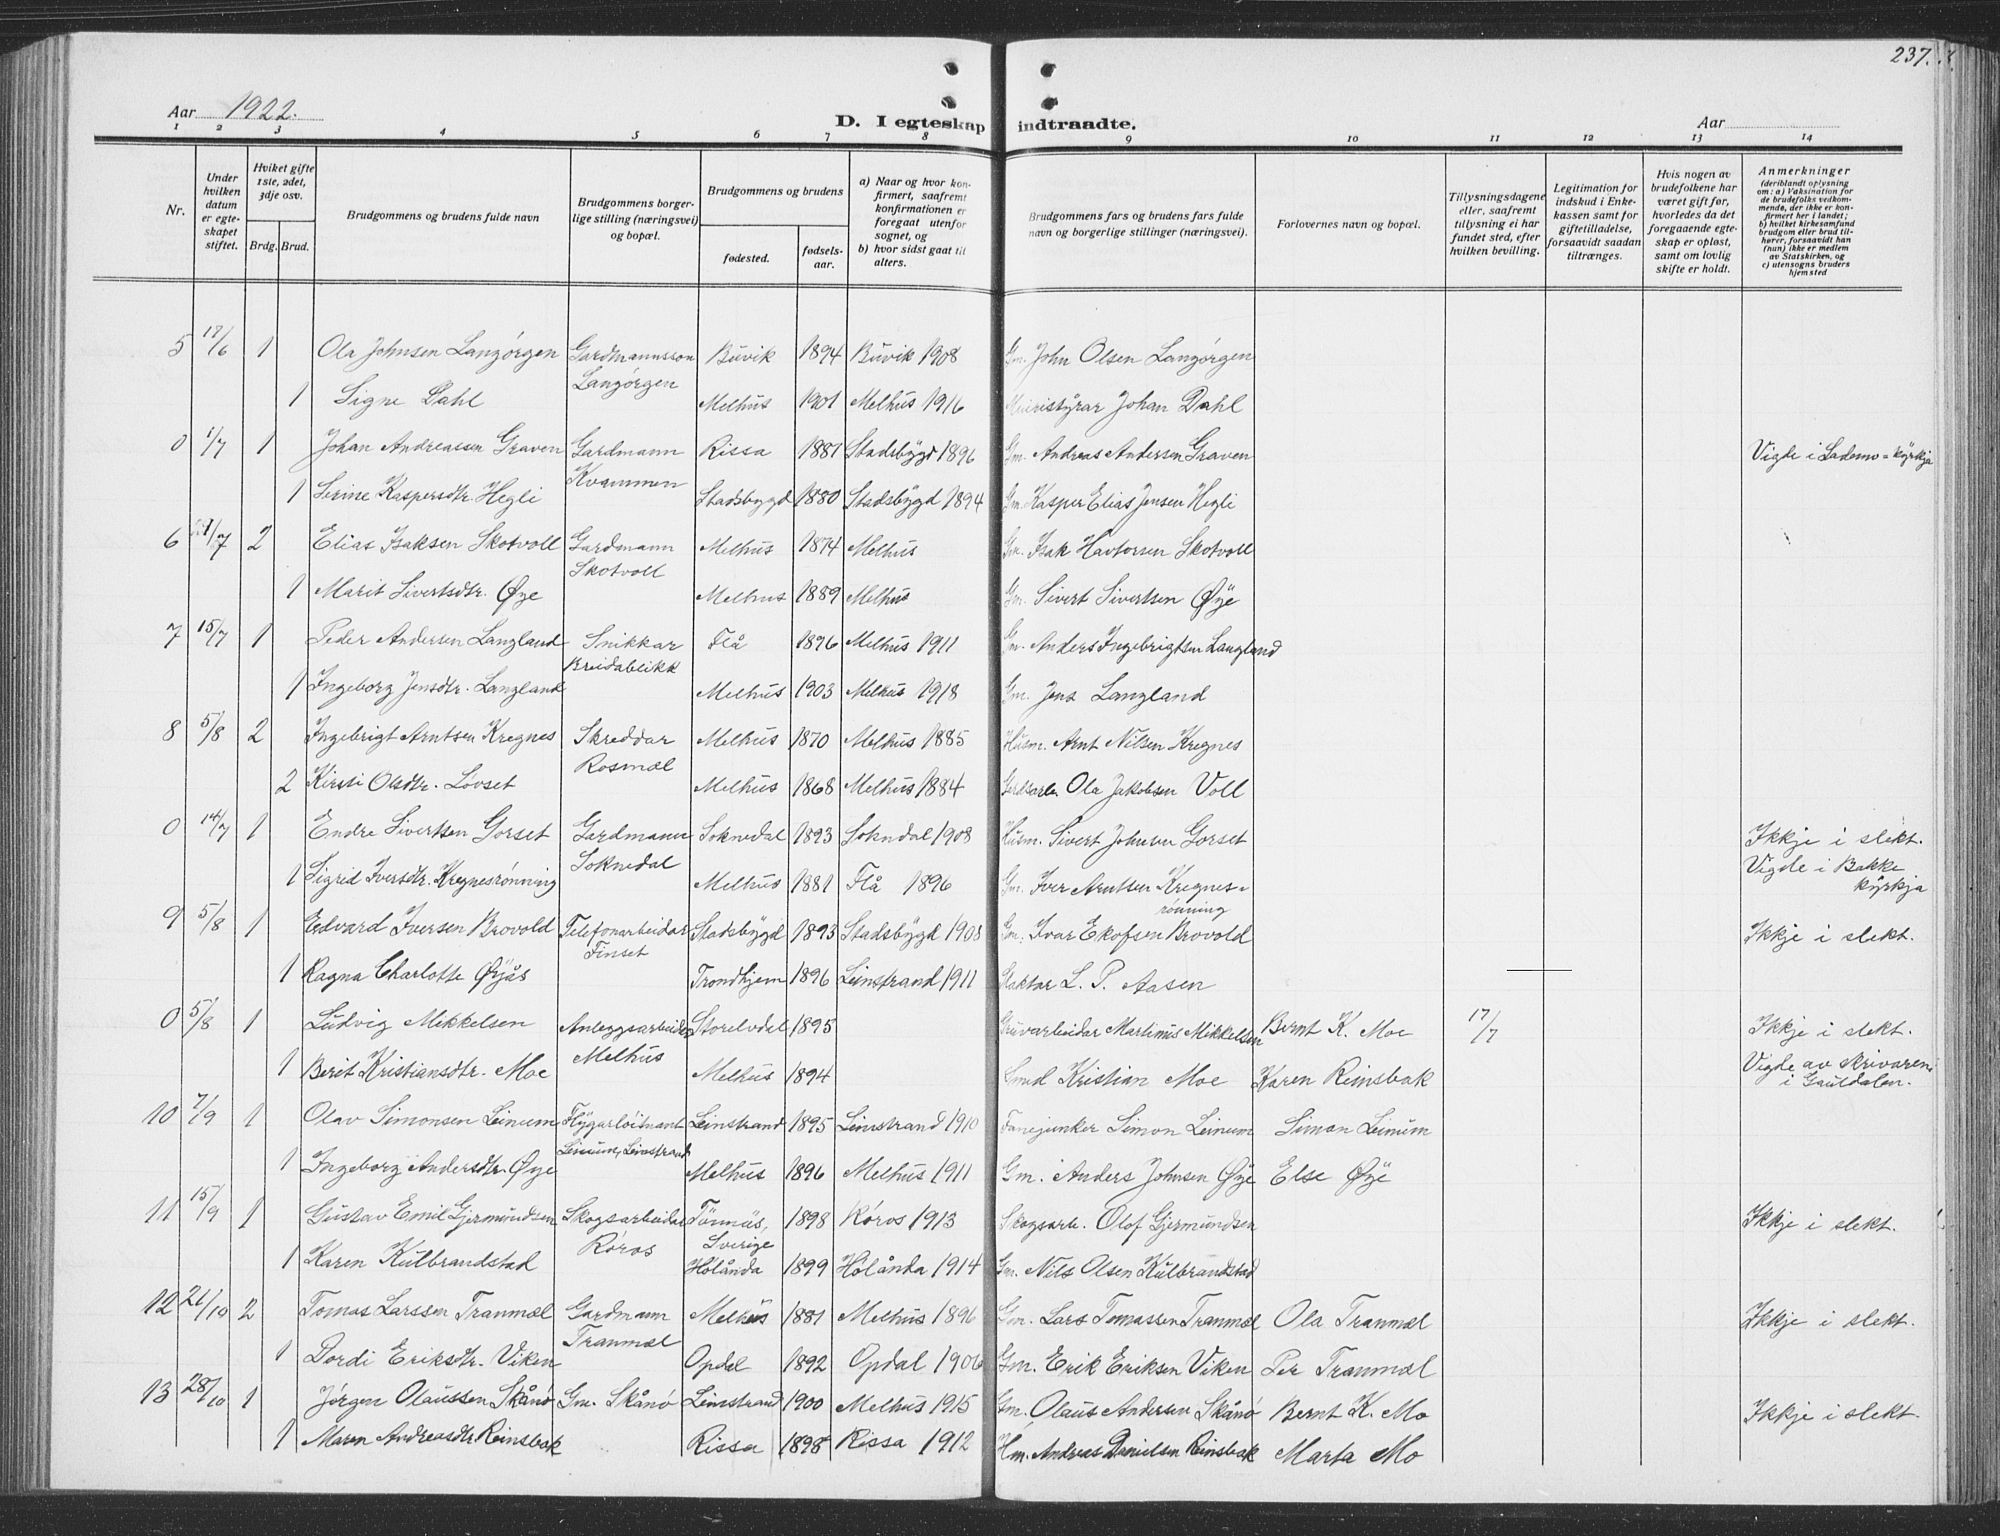 237.
Aar 1922.
D. I egteskap indtraadte.
Aar
1 2 3 4 5 6 7 8 9 10 11 12 13 14
Nr.
Under hvilken datum er egteskapet stiftet.
Hviket gifte 1ste, 2det, 3dje osv.
Brdg. Brud.
Brudgommens og brudens fulde navn
Brudgommens borgerlige stilling (næringsvei) og bopæl.
Brudgommens og brudens
fødested.
fødselsaar.
a) Naar og hvor konfirmert, saafremt konfirmationen er foregaat utenfor sognet, og
b) hvor sidst gaat til alters.
Brudgommens fars og brudens fars fulde navn og borgerlige stillinger (næringsvei).
Forlovernes navn og bopæl.
Tillysningsdagene eller, saafremt tillysning ei har fundet sted, efter hvilken bevilling.
Legitimation for indskud i Enkekassen samt for giftetilladelse, forsaavidt saadan tiltrænges.
Hvis nogen av brudefolkene har været gift før, hvorledes da det foregaaende egteskap er opløst, samt om lovlig skifte er holdt.
Anmerkninger (deriblandt oplysning om: a) Vaksination for de brudefolks vedkommende, der ikke er konfirmert her i landet; b) hvilket kirkesamfund brudgom eller brud tilhører, forsaavidt han (hun) ikke er medlem av Statskirken, og c) utensogns bruders hjemsted
5 17/6 1 Ola Johnsen Langørgen Gardmannsson Buvik 1894 Buvik 1908 Gm. John Olsen Langørgen
Langørgen
1 Signe Dahl Melhus 1901 Melhus 1916 Meieristyrar Johan Dahl
0 1/7 1 Johan Andreassen Graven Gardmann Rissa 1881 Stadsbygd 1896 Gm. Andreas Andersen Graven Vigde i Lademo-kyrkja
Kvammen
1 Serine Kaspersdtr. Hegli Stadsbygd 1880 Stadsbygd 1894 Gm. Kasper Elias Jensen Hegli
6 1/7 2 Elias Isaksen Skotvoll Gardmann Melhus 1874 Melhus Gm. Isak Havtorsen Skotvoll
Skotvoll
1 Marit Sivertsdtr. Øye Melhus 1889 Melhus Gm. Sivert Sivertsen Øye
7 15/7 1 Peder Andersen Langland Snikkar Flå 1896 Melhus 1911 Gm. Anders Ingebrigtsen Langland
Breidablikk
1 Ingeborg Jensdtr. Langland Melhus 1903 Melhus 1918 Gm. Jens Langland
8 5/8 2 Ingebrigt Arntsen Kregnes Skreddar Melhus 1870 Melhus 1885 Husm. Arnt Nilsen Kregnes
Rosmæl
2 Kirsti Olsdtr. Lovset Melhus 1868 Melhus 1884 Ola Jakobsen Voll
0 14/7 1 Endre Sivertsen Gorset Gardmann Soknedal 1893 Sokndal 1908 Husm. Sivert Johnsen Gorset Ikkje i slekt.
Soknedal Vigde i Bakke kyrkja
1 Sigrid Iversdtr. Kregnesrønning Melhus 1881 Flå 1896 Gm. Iver Arntsen Kregnes-
rønning
9 5/8 1 Edvard Iversen Brovold Telefonarbeidar Stadsbygd 1893 Stadsbygd 1908 Gm. Ivar Ekofsen Brovold Ikkje i slekt.
Finset
1 Ragna Charlotte Øyås Trondhjem 1896 Leinstrand 1911 L. P. Aasen
0 5/8 1 Ludvig Mikkelsen Anleggsarbeidar Storelvdel 1895 Gruvarbeidar Martinus Mikkelsen Bernt K. Moe 17/7 Ikkje i slekt.
Melhus
1 Berit Kristiansdtr. Moe Melhus 1894 Smed Kristian Moe Karen Reinsbak Vigde av skrivaren i Gauldalen.
10 2/9 1 Olav Simonsen Leinum Flygarløitnant Leinstrand 1895 Leinstrand 1910 Fanejunker Simon Leinum Simon Leinum
Leinum, Leinstrand
1 Ingeborg Andersdtr. Øye Melhus 1896 Melhus 1911 Gm. Anders Johnsen Øye Else Øye
11 15/9 1 Gustav Emil Gjermundsen Skogsarbeidar Tännäs, 1898 Røros 1913 Skogsarb. Olof Gjermundsen Ikkje i slekt.
Røros Sverige
1 Karen Kulbrandstad Hølånda 1899 Hølånda 1914 Gm. Nils Olsen Kulbrandstad
12 21/10 2 Tomas Larssen Tranmæl Gardmann Melhus 1881 Melhus 1896 Gm. Lars Tomassen Tranmæl Ola Tranmæl Ikkje i slekt.
Tranmæl
1 Dordi Eriksdtr. Viken Opdal 1892 Opdal 1906 Gm. Erik Eriksen Viken Per Tranmæl
13 28/10 1 Jørgen Olaussen Skånø Gm. Skånø Leinstrand 1900 Melhus 1915 Gm. Olaus Andersen Skånø Bernt K. Mo Ikkje i slekt.
1 Maren Andreasdtr. Reinsbak Rissa 1898 Rissa 1912 Hm. Andreas Danielsen Reinsbak Marta Mo